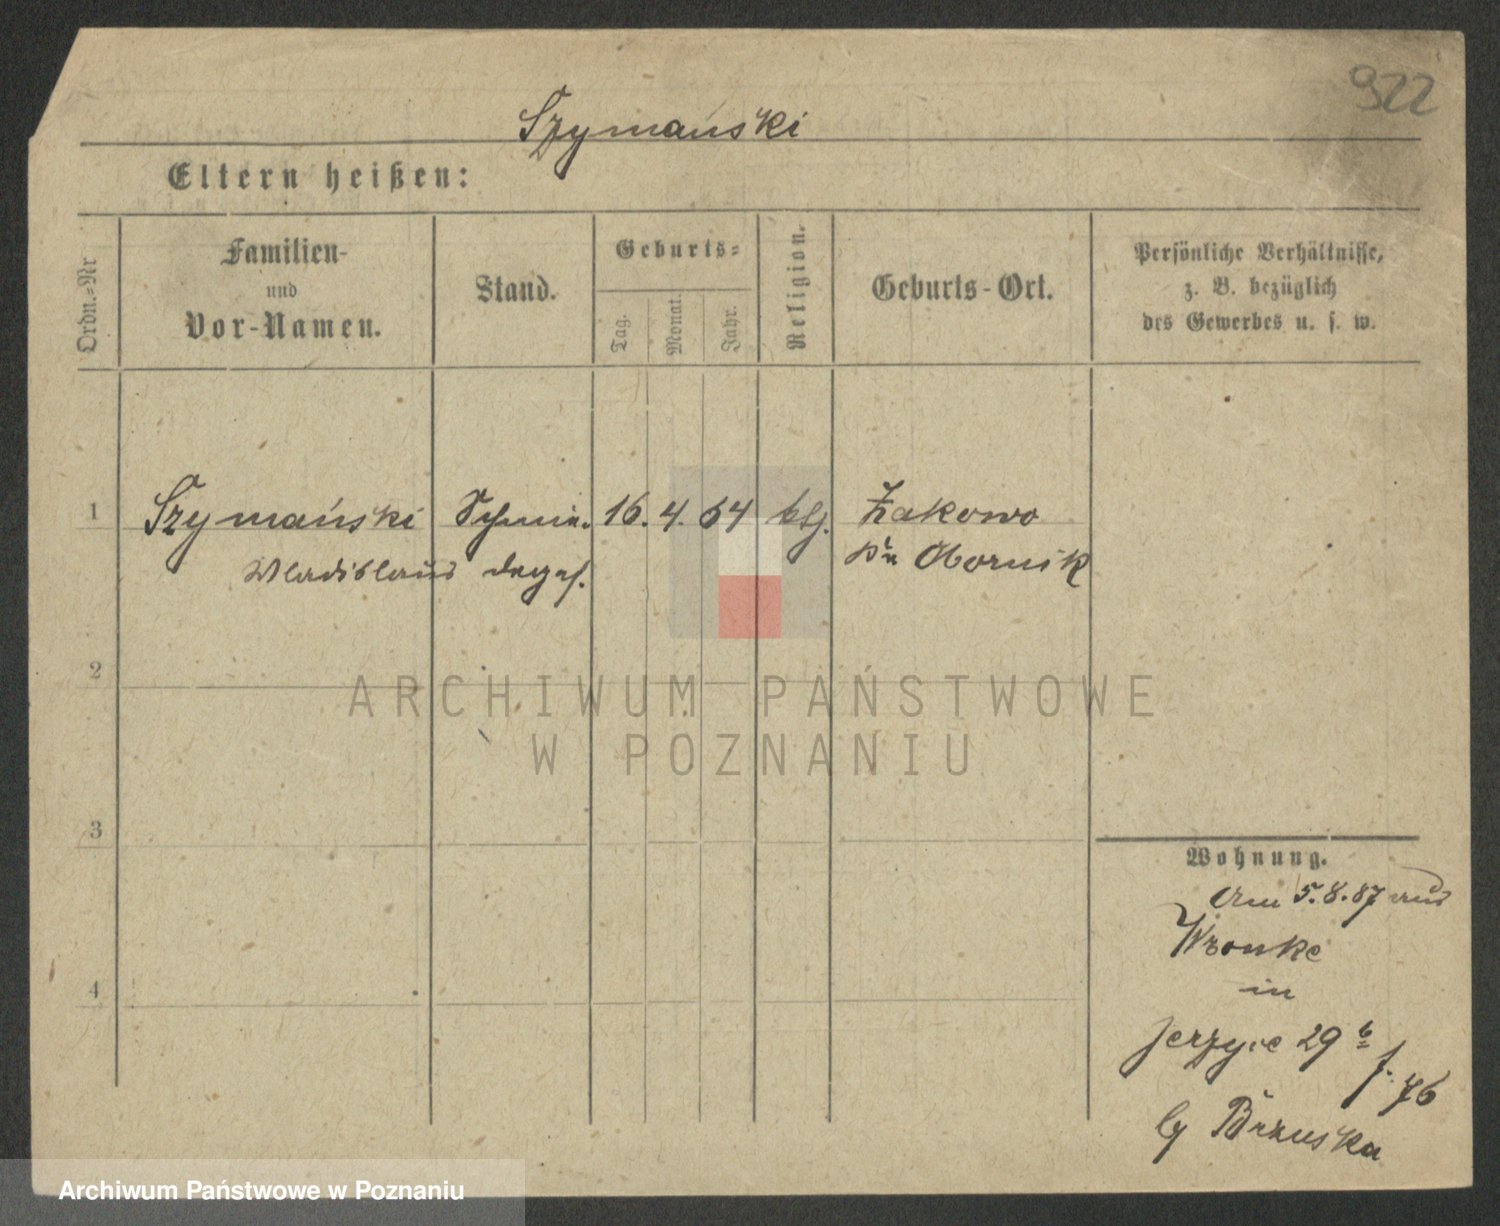 922
Szymański
Eltern heißen:
Ordn.-Nr
Familien-
und
Vor-Namen.
Stand.
Geburts-
Tag.
Monat.
Jahr.
Religion.
Geburts-Ort.
Persönliche Verhältnisse,
z. B. bezüglich
des Gewerbes u. s. w.
1 Szymański Schmie- 16. 4. 64 ktf. Żakowo
Wladislaus degs. Kr. Obornik
2
ARCHIWUM PAŃSTWOWE
W POZNANIU
3
Wohnung.
Am 5.8.87 aus
Wronke
in
4
Jerzyce 29 b
f. 76
by Brzuska
Archiwum Państwowe w Poznaniu